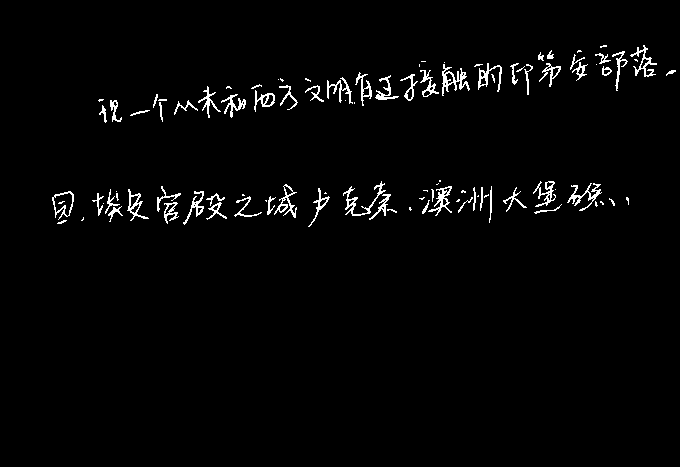 现一个从未和西方文明有过接触的印第安部落。
园、埃及宫殿之城卢克索、澳洲大堡礁、